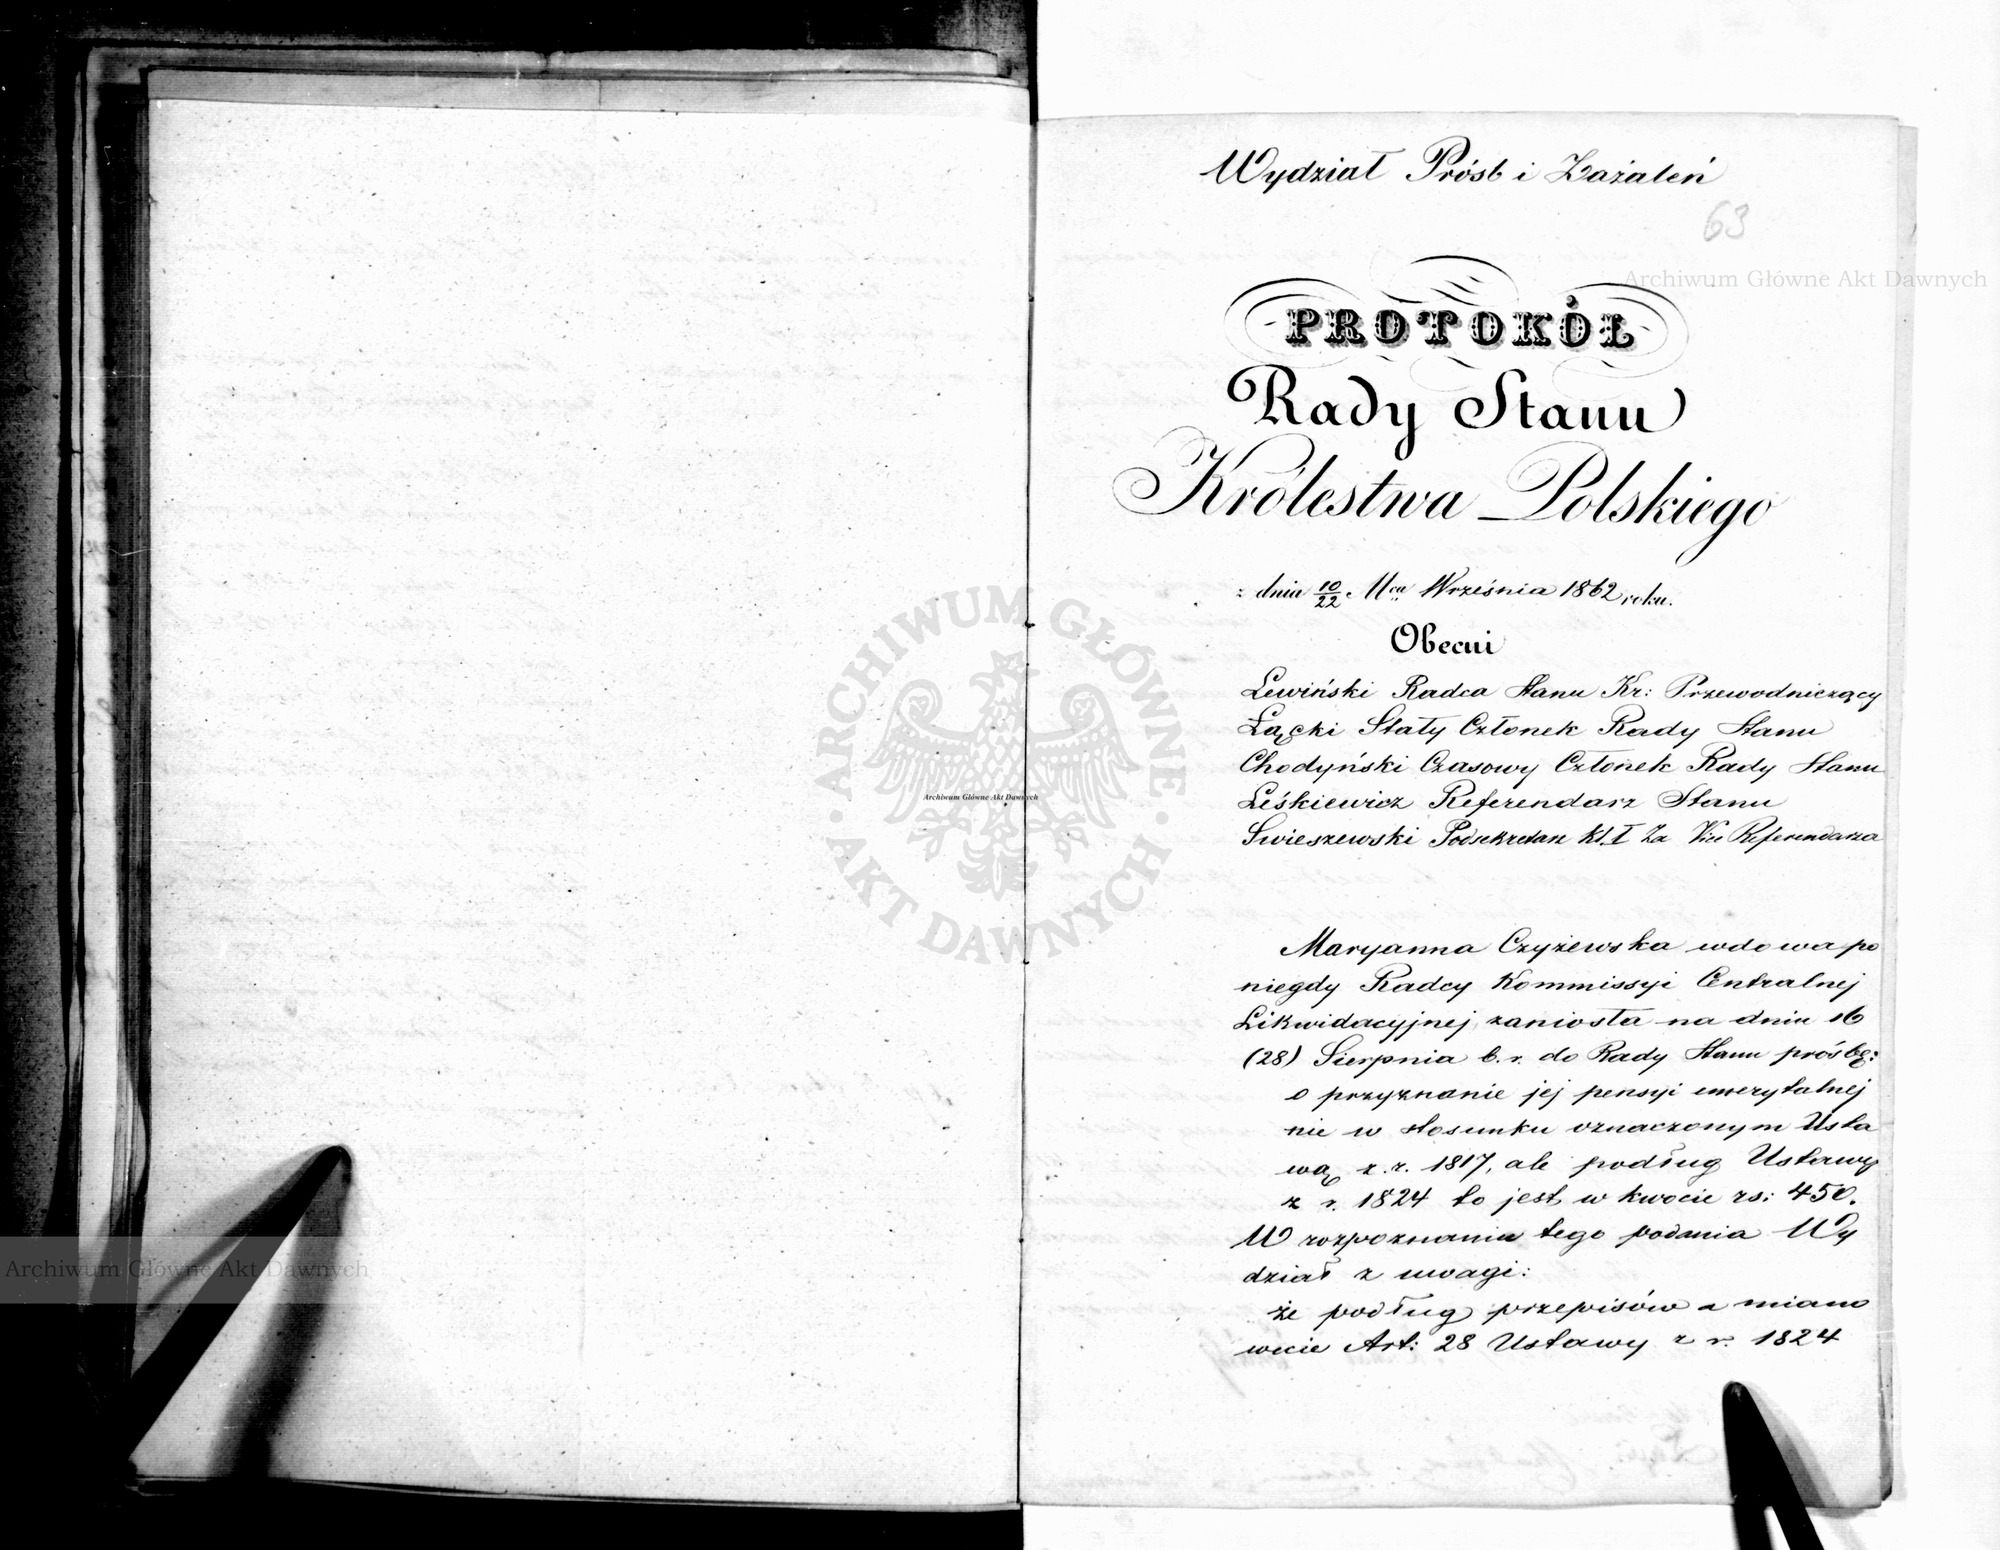 Wydział Próśb i Zażaleń
63
Archiwum Główne Akt Dawnych
PROTOKÓŁ
Rady Stanu
Królestwa Polskiego
z dnia 10/22 Mca Września 1862 roku.
Obecni
Lewiński Radca Stanu Kr: Przewodniczący
Łącki Stały Członek Rady Stanu
Chodyński Czasowy Członek Rady Stanu
Leśkiewicz Referendarz Stanu
Swieszewski Podsekretarz Kl. I Za Vice Referendarza
ARCHIWUM GŁÓWNE · AKT DAWNYCH ·
Archiwum Główne Akt Dawnych
Maryanna Czyżewska wdowa po
niegdy Radcy Kommissyi Centralnej
Likwidacyjnej zaniosła na dniu 16
(28) Sierpnia b. r. do Rady Stanu prośbę:
o przyznanie jej pensyi emerytalnej
nie w stosunku oznaczonym Usta
wą z. r. 1817, ale podług Ustawy
z r. 1824 to jest w kwocie rs: 450.
W rozpoznaniu tego podania Wy
dział z uwagi:
że podług przepisów a miano
wicie Art: 28 Ustawy z r. 1824
Archiwum Główne Akt Dawnych